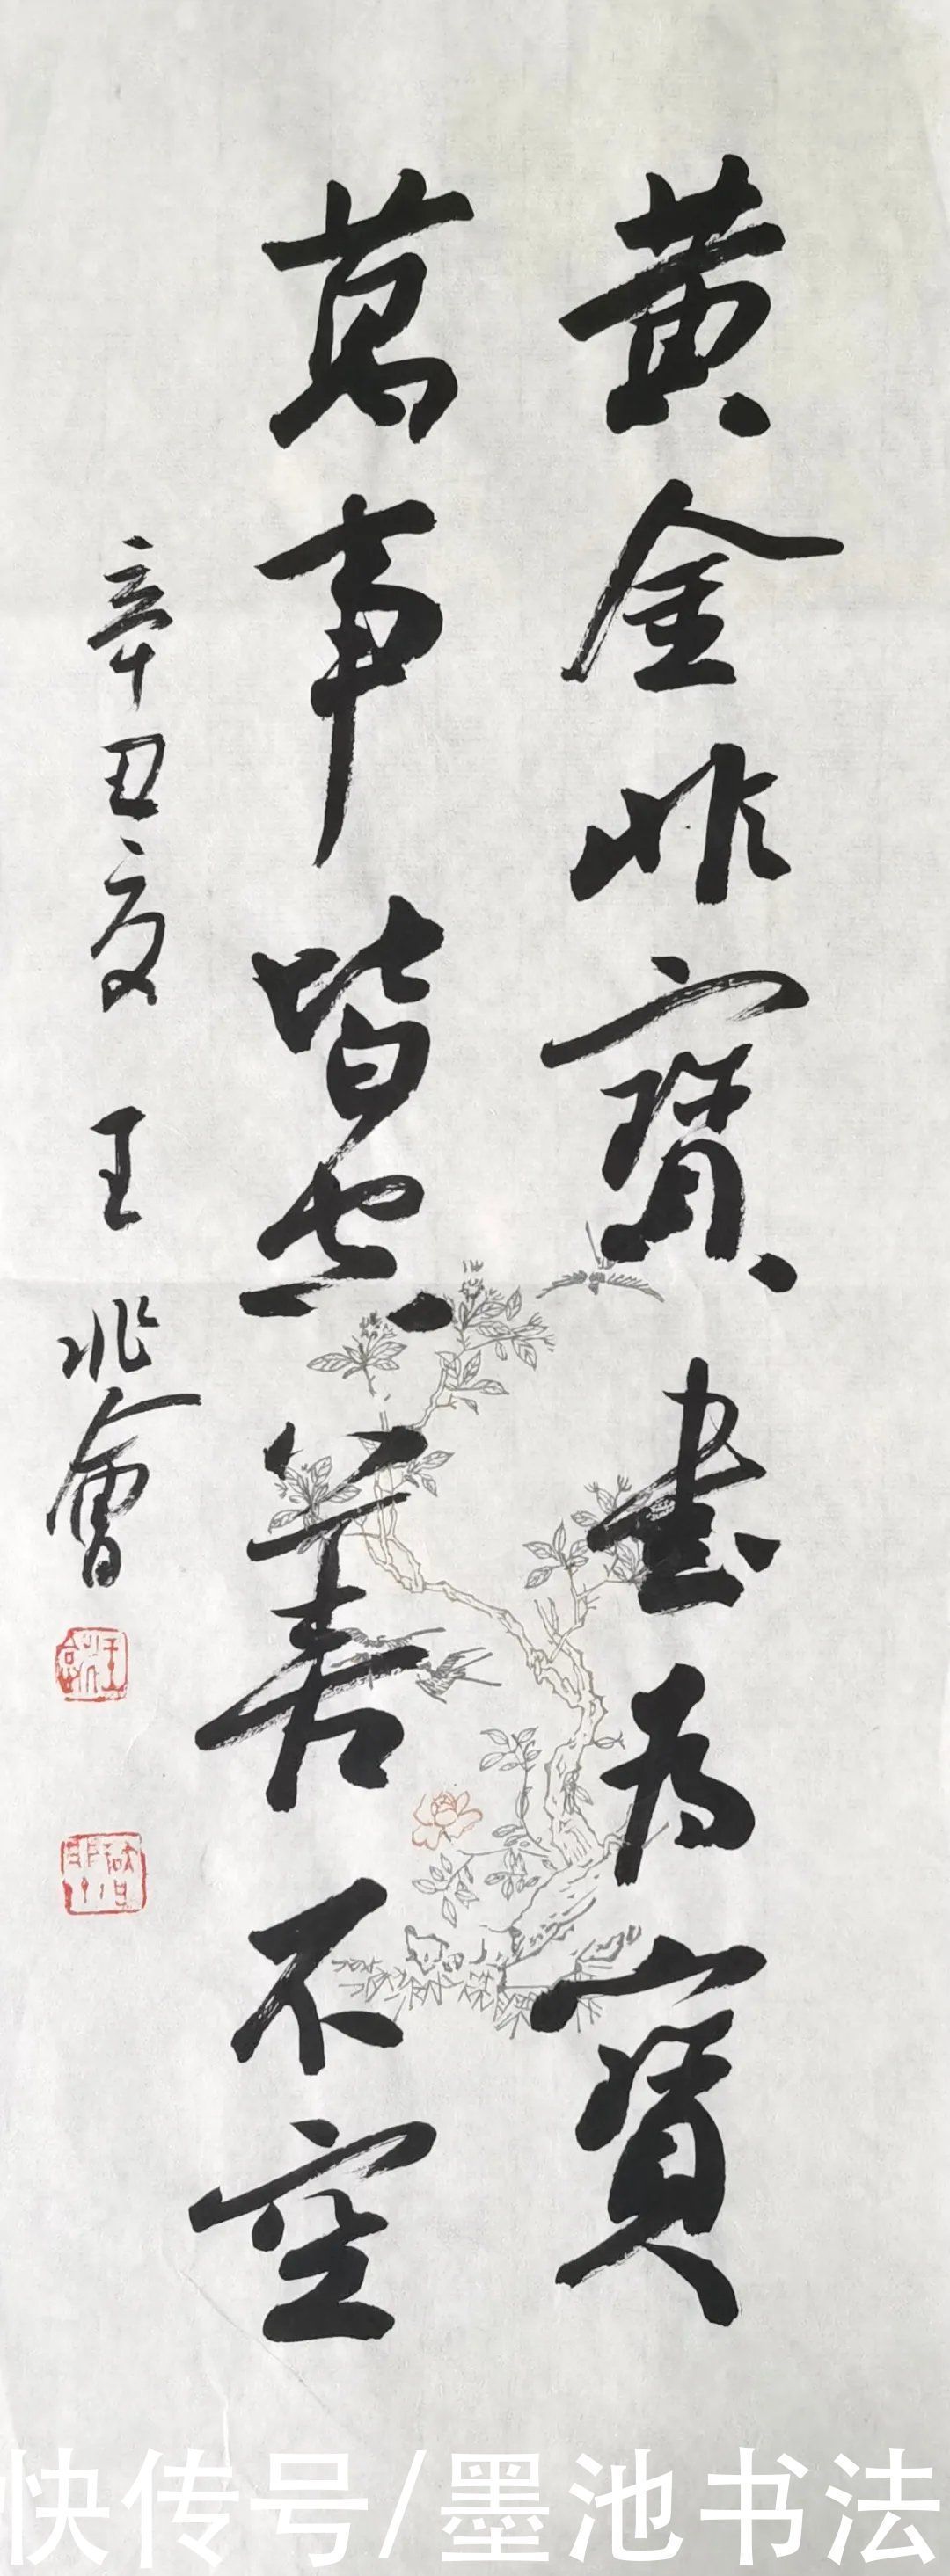 黄金非寶書为寶
萬事皆空善不空
辛丑夏 王兆會
快传号/墨池书法